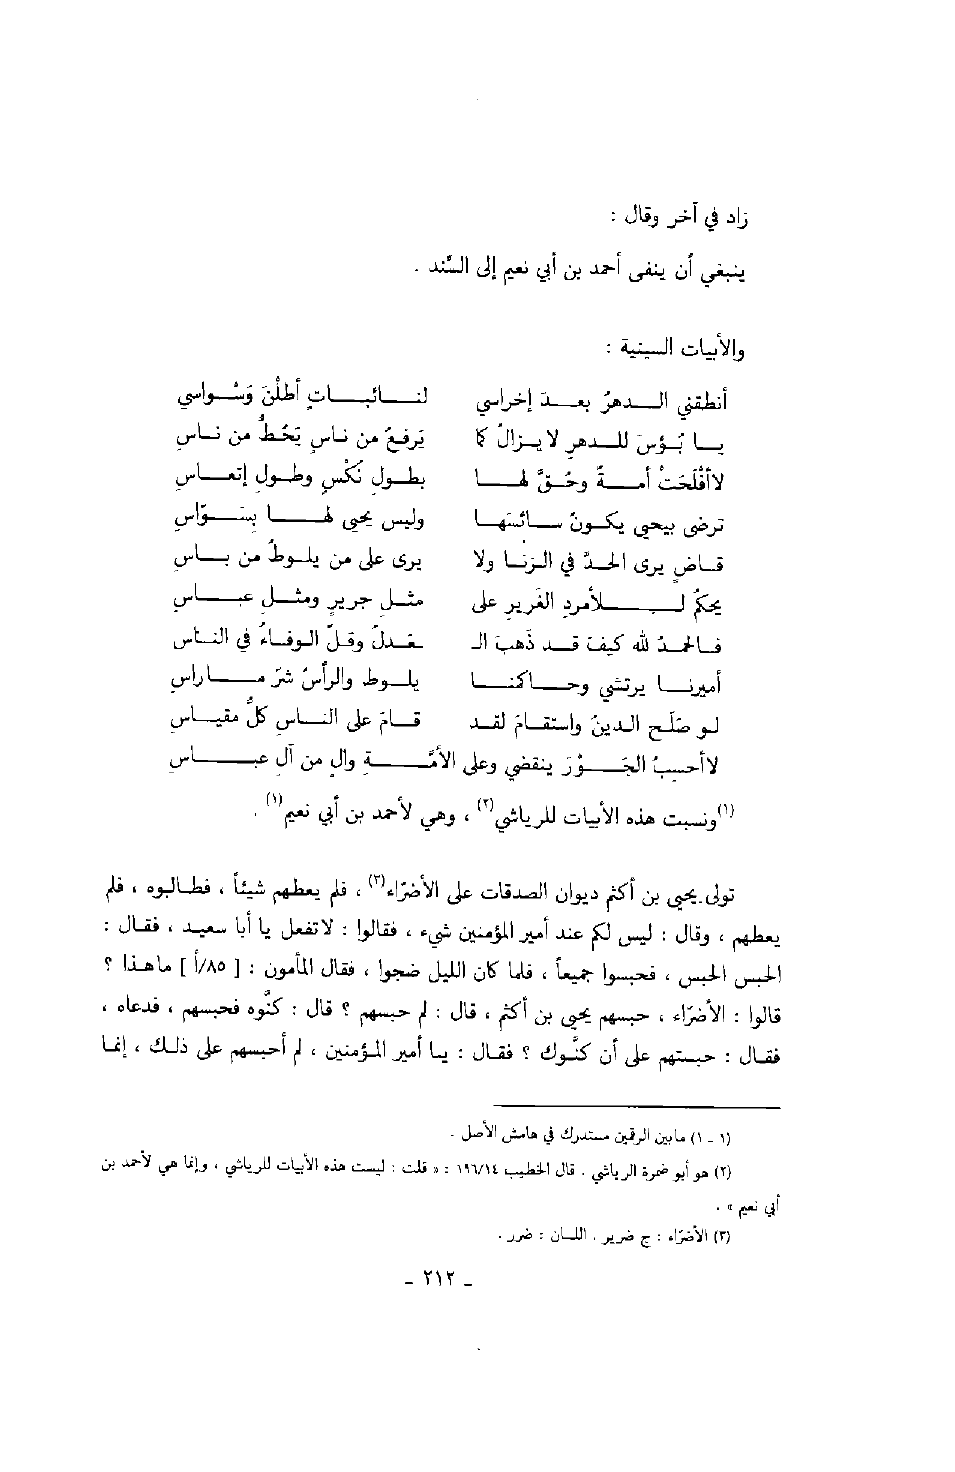 زاد في آخر وقال :
ينبغي أن ينفى أحمد بن أبي نعيم إلى السِّند .
والأبيات السينية :
أنطقني الدهرُ بعد إخراسي لنائباتٍ أطلْنَ وَسْواسي
يا بُؤسَ للدهرِ لا يزالُ كما يَرفعُ من ناسٍ يَحُطُّ من ناسِ
لا أفْلَحَتْ أمةٌ وحُقَّ لها بطولِ نُكْسٍ وطولِ إتعاسِ
ترضى بيحيى يكونُ سائسَها وليس يحيى لها بسَوّاسِ
قاضٍ يرى الحدَّ في الزنا ولا يرى على من يلوطُ من باسِ
يحكمُ للأمردِ الغريرِ على مثلِ جريرٍ ومثلِ عباسِ
فالحمدُ لله كيفَ قد ذهبَ الـ ـعدلُ وقلَّ الوفاءُ في الناسِ
أميرنا يرتشي وحاكمنا يلوط والرأسُ شرّ ماراسِ
لو صَلَح الدينُ واستقامَ لقد قامَ على الناسِ كلُّ مقياسِ
لا أحسِبُ الجَوْرَ ينقضي وعلى الأمَّةِ والٍ من آل عباسِ
(١)ونسبت هذه الأبيات للرياشي(٢) ، وهي لأحمد بن أبي نعيم(١) .
تولى يحيى بن أكثم ديوان الصدقات على الأضرّاء(٣) ، فلم يعطهم شيئاً ، فطالبوه ، فلم
يعطهم ، وقال : ليس لكم عند أمير المؤمنين شيء ، فقالوا : لا تفعل يا أبا سعيد ، فقال :
الحبس الحبس ، فحبسوا جميعاً ، فلما كان الليل ضجوا ، فقال المأمون : [ ٨٥/أ ] ماهذا ؟
قالوا : الأضرّاء ، حبسهم يحيى بن أكثم ، قال : لم حبسهم ؟ قال : كنَّوه فحبسهم ، فدعاه ،
فقال : حبستهم على أن كنَّوك ؟ فقال : يا أمير المؤمنين ، لم أحبسهم على ذلك ، إنما
(١ - ١) مابين الرقمين مستدرك في هامش الأصل .
(٢) هو أبو ضمرة الرياشي . قال الخطيب ١٩٦/١٤ : « قلت : ليست هذه الأبيات للرياشي ، وإنما هي لأحمد بن
أبي نعيم » .
(٣) الأضرّاء : ج ضرير . اللسان : ضرر .
- ٢١٢ -